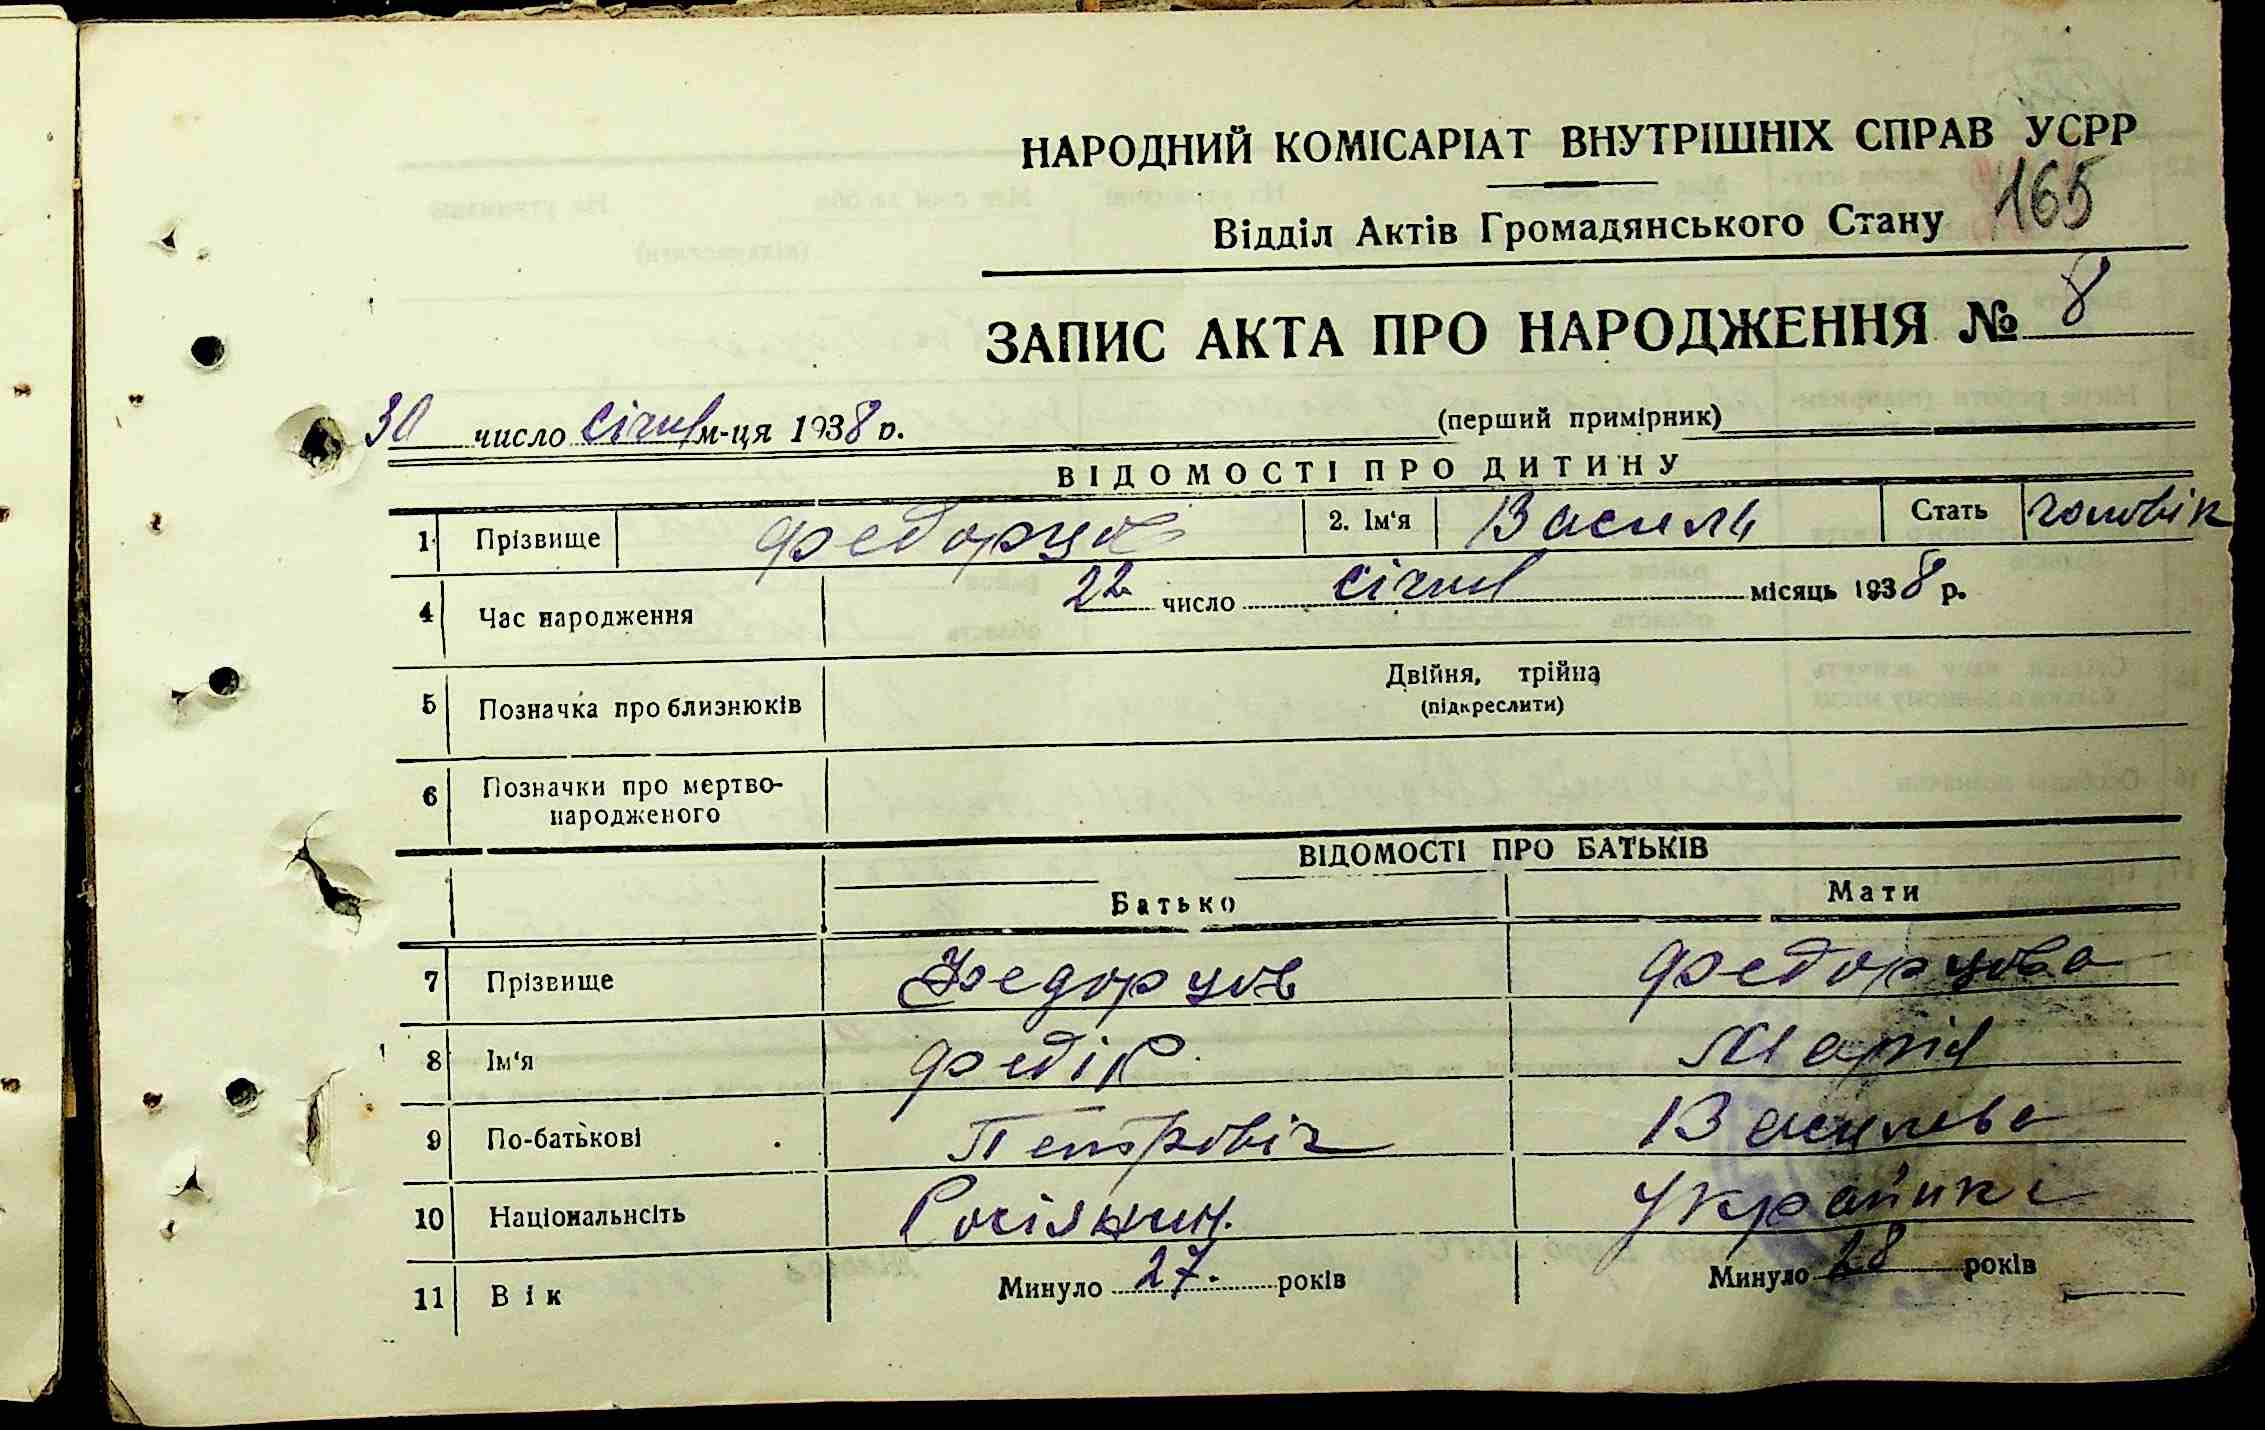 НАРОДНИЙ КОМІСАРІАТ ВНУТРІШНІХ СПРАВ УСРР
165
Відділ Актів Громадянського Стану
ЗАПИС АКТА ПРО НАРОДЖЕННЯ № 8
30 число січня м-ця 1938 р.
(перший примірник)
ВІДОМОСТІ ПРО ДИТИНУ
1 Прізвище Федорцов 2. Ім'я Василь Стать чоловік
4 Час народження 22 число січня місяць 1938 р.
5 Позначка про близнюків Двійня, трійня
(підкреслити)
6 Позначки про мертво-
народженого
ВІДОМОСТІ ПРО БАТЬКІВ
Батько Мати
7 Прізвище Федорцов Федорцова
8 Ім'я Федір Марія
9 По-батькові Петровіч Василева
10 Національнсіть Росіянин. Українка
11 Вік Минуло 27. років Минуло 28 років